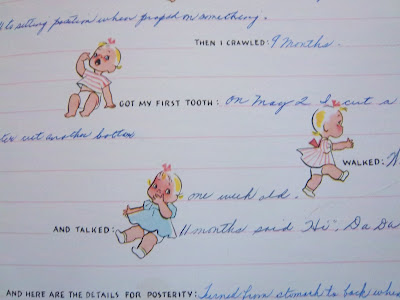 to sitting position when proped on something.
THEN I CRAWLED: 9 Months.
GOT MY FIRST TOOTH: On May 2 I cut a
cut another bottom
WALKED:
one week old.
AND TALKED: 11 months said "Hi", Da Da
AND HERE ARE THE DETAILS FOR POSTERITY: Turned from stomach to back when